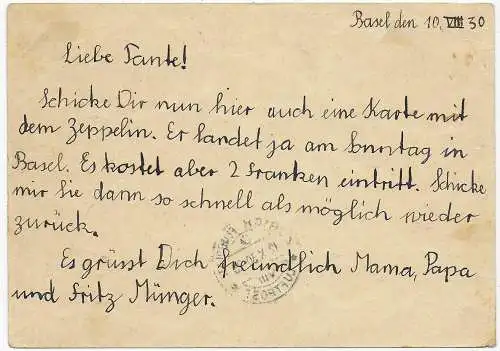 Basel den 10. VIII 30
Liebe Tante!
Schicke Dir nun hier auch eine Karte mit
dem Zeppelin. Er landet ja am Sonntag in
Basel. Es kostet aber 2 Franken eintritt. Schicke
mir Sie dann so schnell als möglich wieder
zurück.
Es grüsst Dich freundlich Mama, Papa
und Fritz Münger.